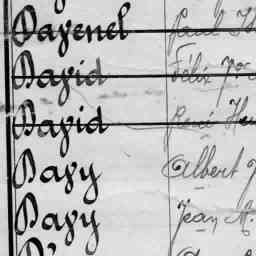 Davenel Paul
David Félix
David René
Davy Albert
Davy Jean M.